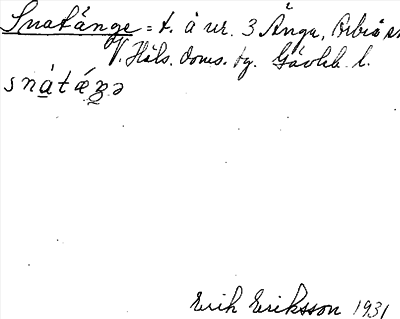 Snatånge = t. å nr. 3 Änga, Arbrå sn
V. Häls. doms. bg. Gävleb. l.
snàtǽŋə
Erik Eriksson 1931